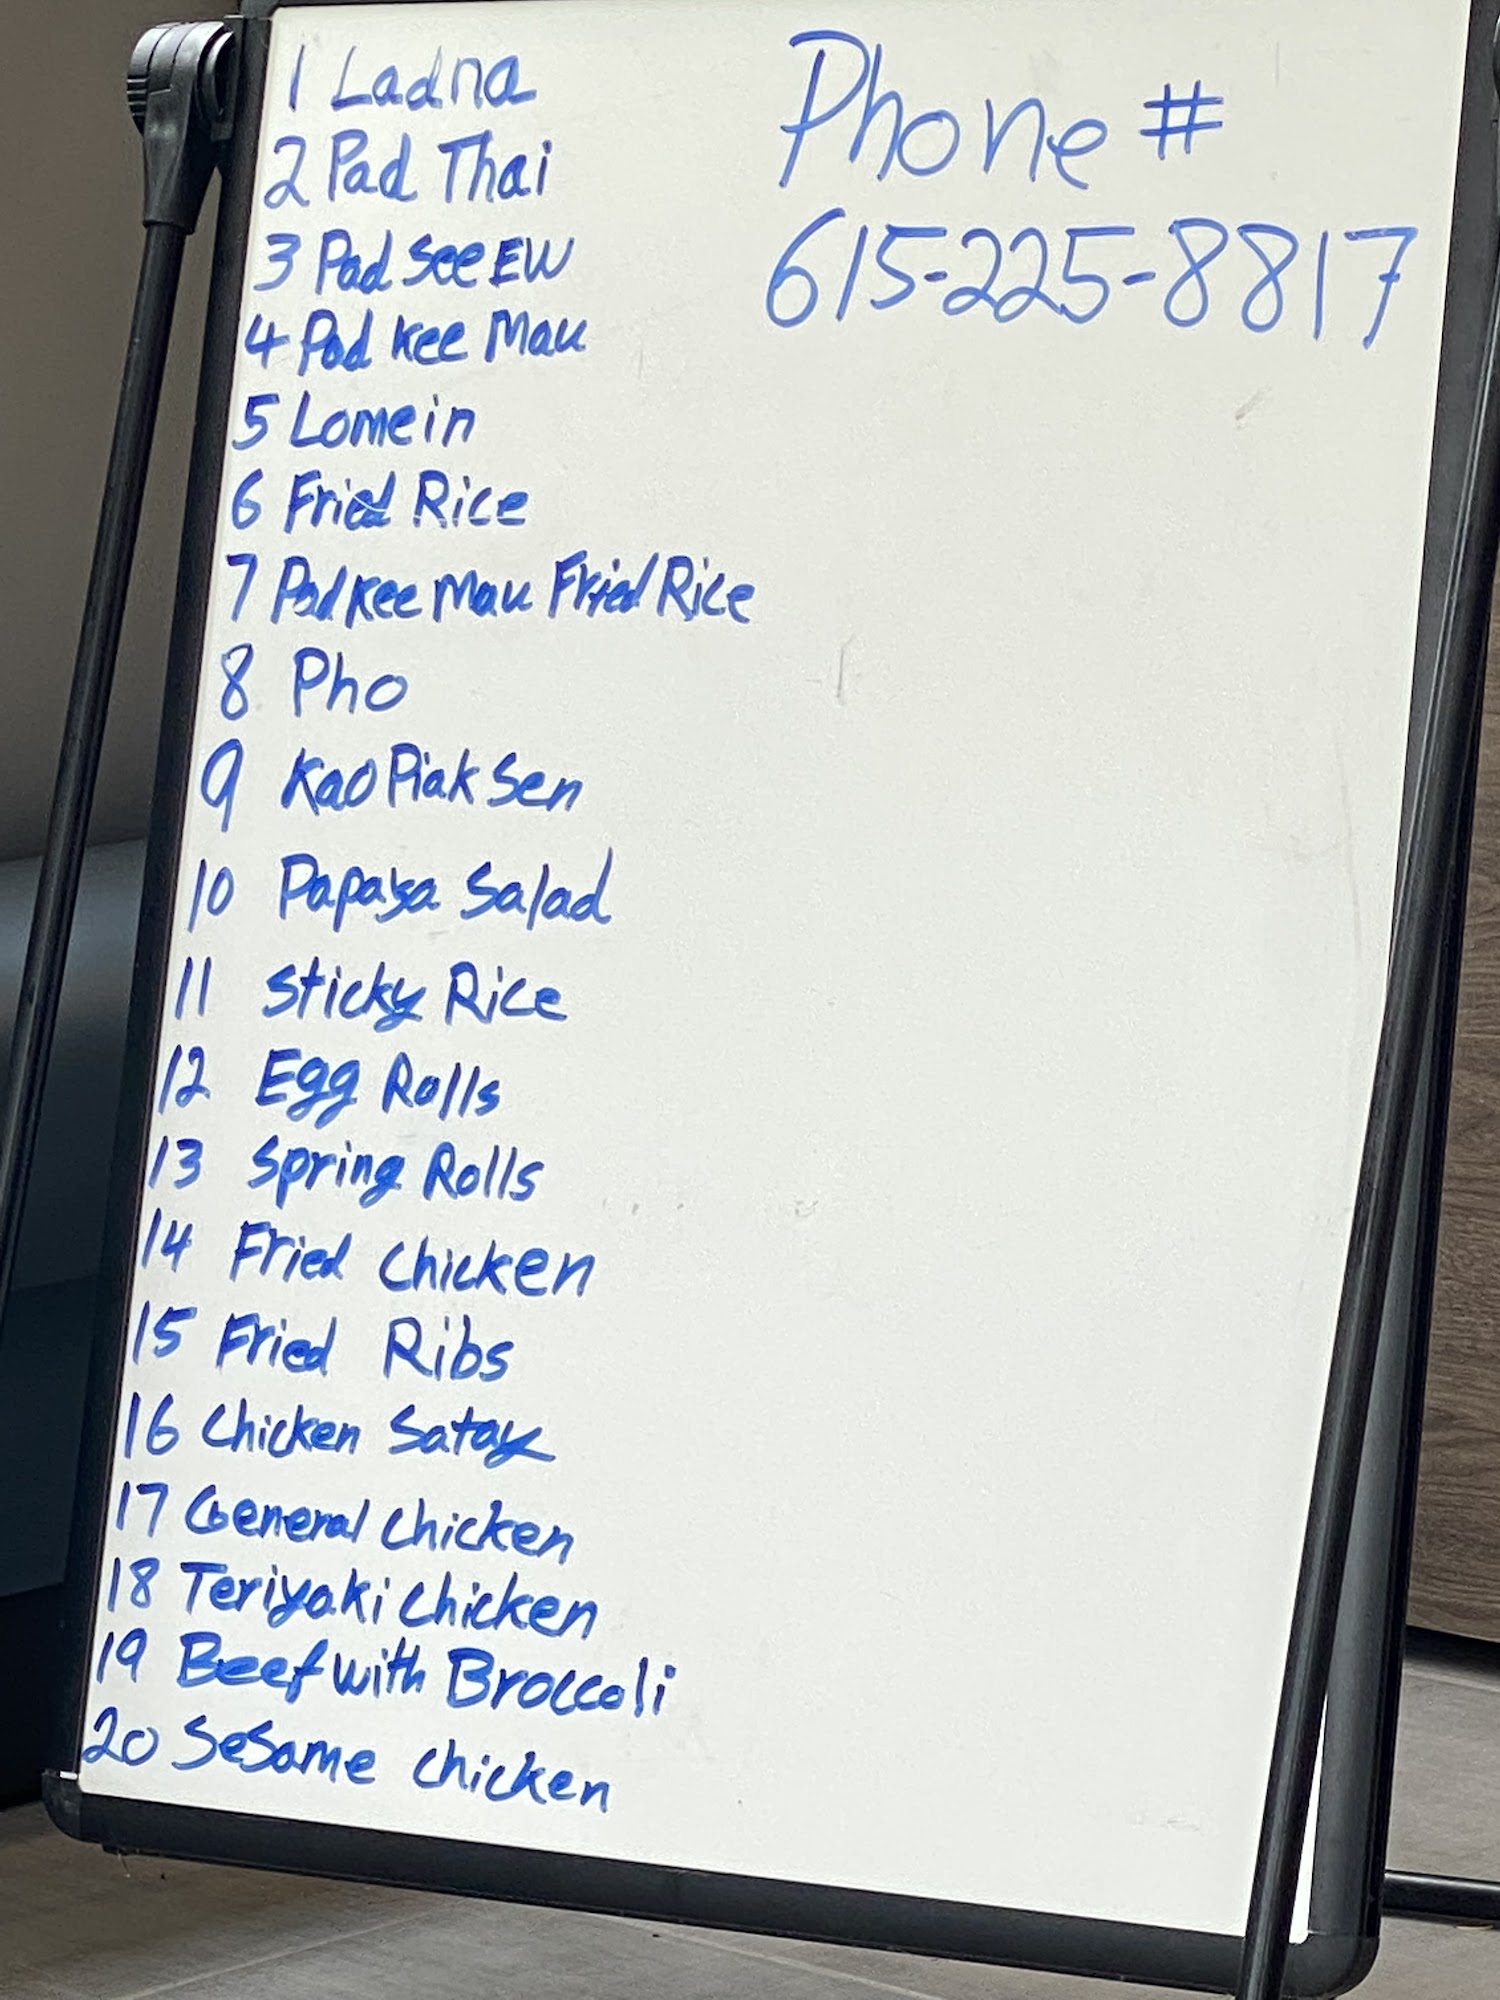 1 Ladna
2 Pad Thai
3 Pad See EW
4 Pad Kee Mau
5 Lomein
6 Fried Rice
7 Pad Kee Mau Fried Rice
8 Pho
9 Kao Piak Sen
10 Papaya Salad
11 Sticky Rice
12 Egg Rolls
13 Spring Rolls
14 Fried Chicken
15 Fried Ribs
16 Chicken Satay
17 General Chicken
18 Teriyaki Chicken
19 Beef with Broccoli
20 Sesame Chicken
Phone #
615-225-8817